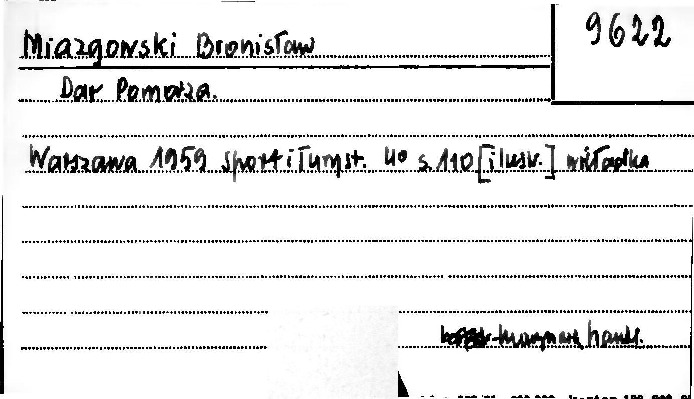 9622
Miazgowski Bronisław
Dar Pomorza.
Warszawa 1959 Sport i Turyst. 4° s. 110 [ilustr.] wkładka
handl.